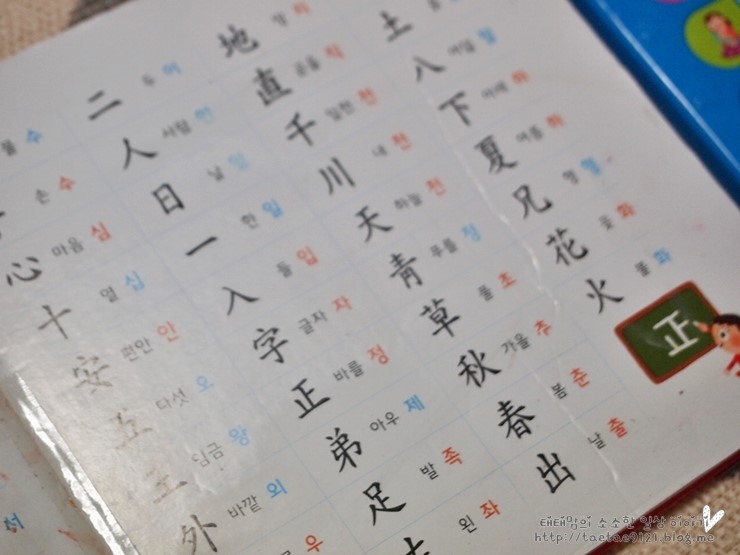 물 수
손 수
心 마음 심
十 열 십
安 편안 안
五 다섯 오
王 임금 왕
外 바깥 외
우
二 두 이
人 사람 인
日 날 일
一 한 일
入 들 입
字 글자 자
正 바를 정
弟 아우 제
足 발 족
왼 좌
地 땅 지
直 곧을 직
千 일천 천
川 내 천
天 하늘 천
青 푸를 청
草 풀 초
秋 가을 추
春 봄 춘
出 날 출
土
八 여덟 팔
下 아래 하
夏 여름 하
兄 형 형
花 꽃 화
火 불 화
正
태태맘의 소소한 일상 이야기
http://taetae9121.blog.me